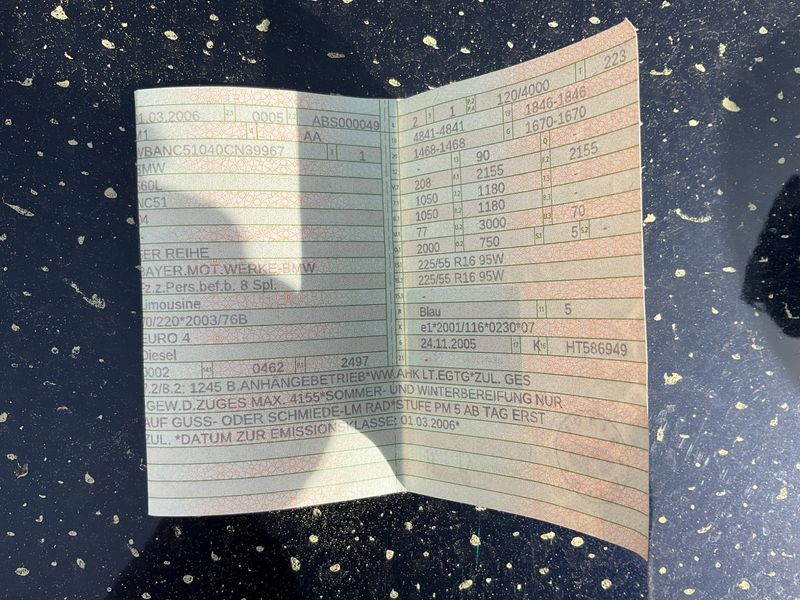 1.03.2006 0005 ABS000049
M1 4 AA
WBANC51040CN39967 3 1
BMW
560L
NC51
04
-
5ER REIHE
BAYER.MOT.WERKE-BMW
Fz.z.Pers.bef.b. 8 Spl.
Limousine
70/220*2003/76B
EURO 4
Diesel
0002 14.1 0462 P.1 2497
7.2/8.2: 1245 B.ANHÄNGEBETRIEB*WW.AHK LT.EGTG*ZUL. GES
GEW.D.ZUGES MAX. 4155*SOMMER- UND WINTERBEREIFUNG NUR
AUF GUSS- ODER SCHMIEDE-LM RAD*STUFE PM 5 AB TAG ERST
ZUL. *DATUM ZUR EMISSIONSKLASSE: 01.03.2006*
2 9 1 P.2 P.4 120/4000 T 223
18 4841-4841 19 1846-1846
1468-1468 G 1670-1670
20 - 13 90 Q -
12 - F.1 2155 F.2 2155
208 1180
1050 1180
1050 1180 70
77 U.2 3000 U.3
2000 O.2 750 S.1 5 S.2 -
225/55 R16 95W
225/55 R16 95W
-
R Blau 11 5
K e1*2001/116*0230*07
6 24.11.2005 17 K 16 HT586949
21 -